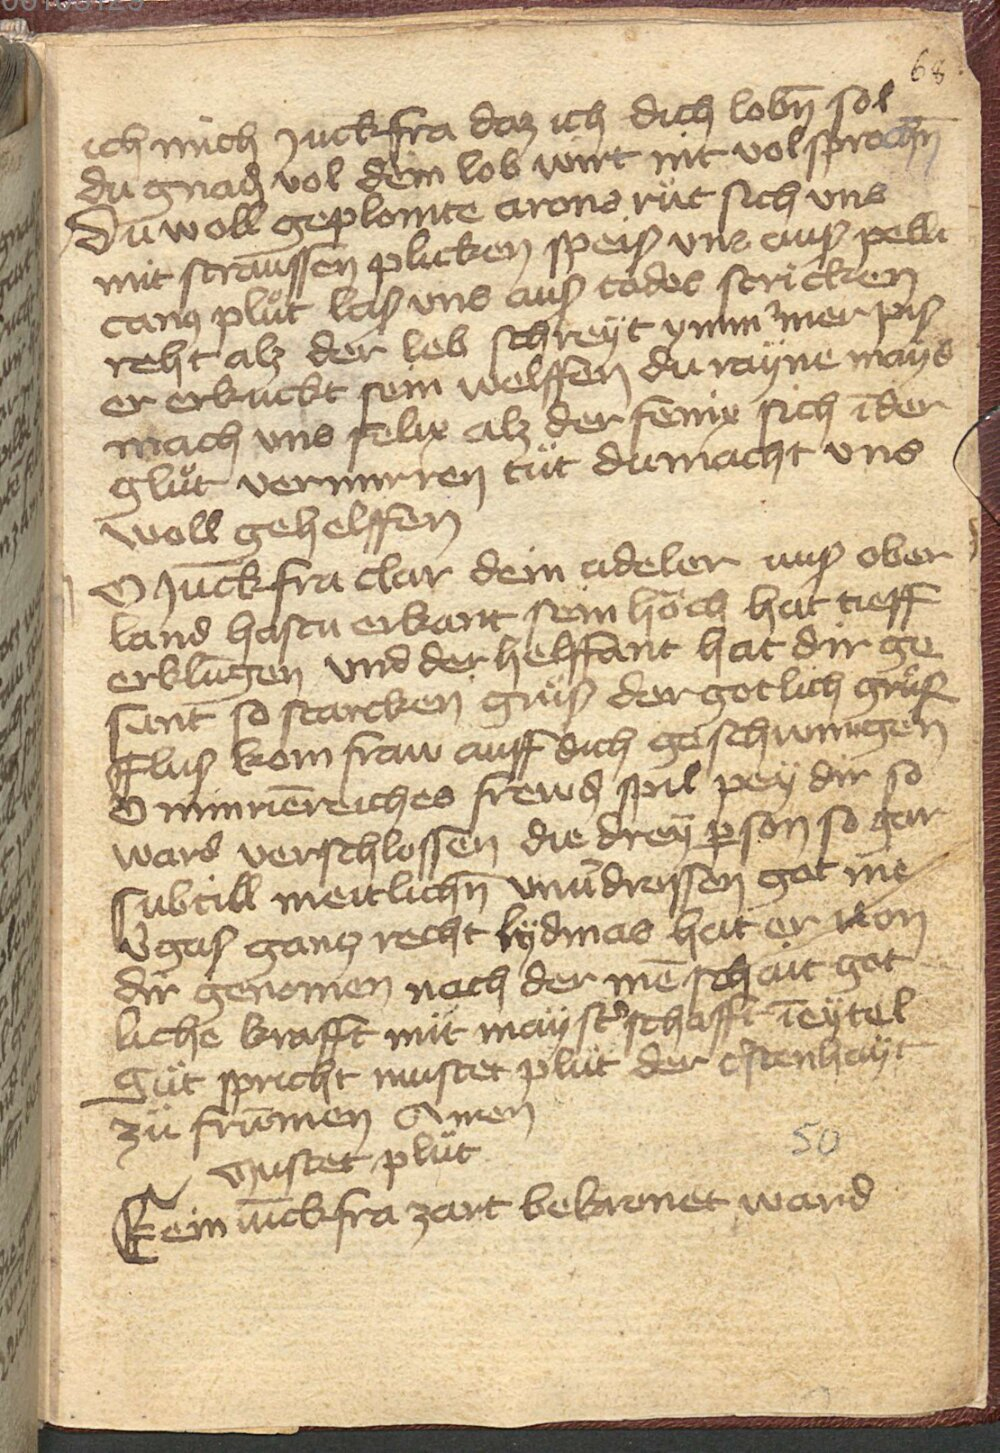 68
ich mich Junckfra daz ich dich lobn̄ sol
du gnadn̄ vol dein lob wirt nit vol sprochn̄
Du woll geplomte arons rut sich vns
mit straussen plicken speis vns aus pelli
cans plut las vns aus todes stricken
reht alz der leb schreyt ymmer pis
er erkuckt sein welffen du rayne mays
mach vns felix alz der fenix sich ī der
glut vernurren tut du macht vns
woll gehelffen
O Junckfra clar dein adeler aus ober
land hastu erkant sein hoch hat tieff
erklungen vnd der helffant hat dir ge
sant so starcken grus der gotlich grus
flus kom fraw auff dich geschwungen
O minnēreiches frewdn̄ spil pey dir so
ward verschlossen die drey pson so gar
subtill meitlichn̄ vnūdrossen got nīe
v̄gas gantz recht lydmas hat er von
dir genomen nach der mēschait got
liche krafft mit maystschafft ī eytel
Gut spricht mustet plut der cristenhayt
zu frumen Amen
50
Mustet plut
Eein iunckfra zart bekronet ward